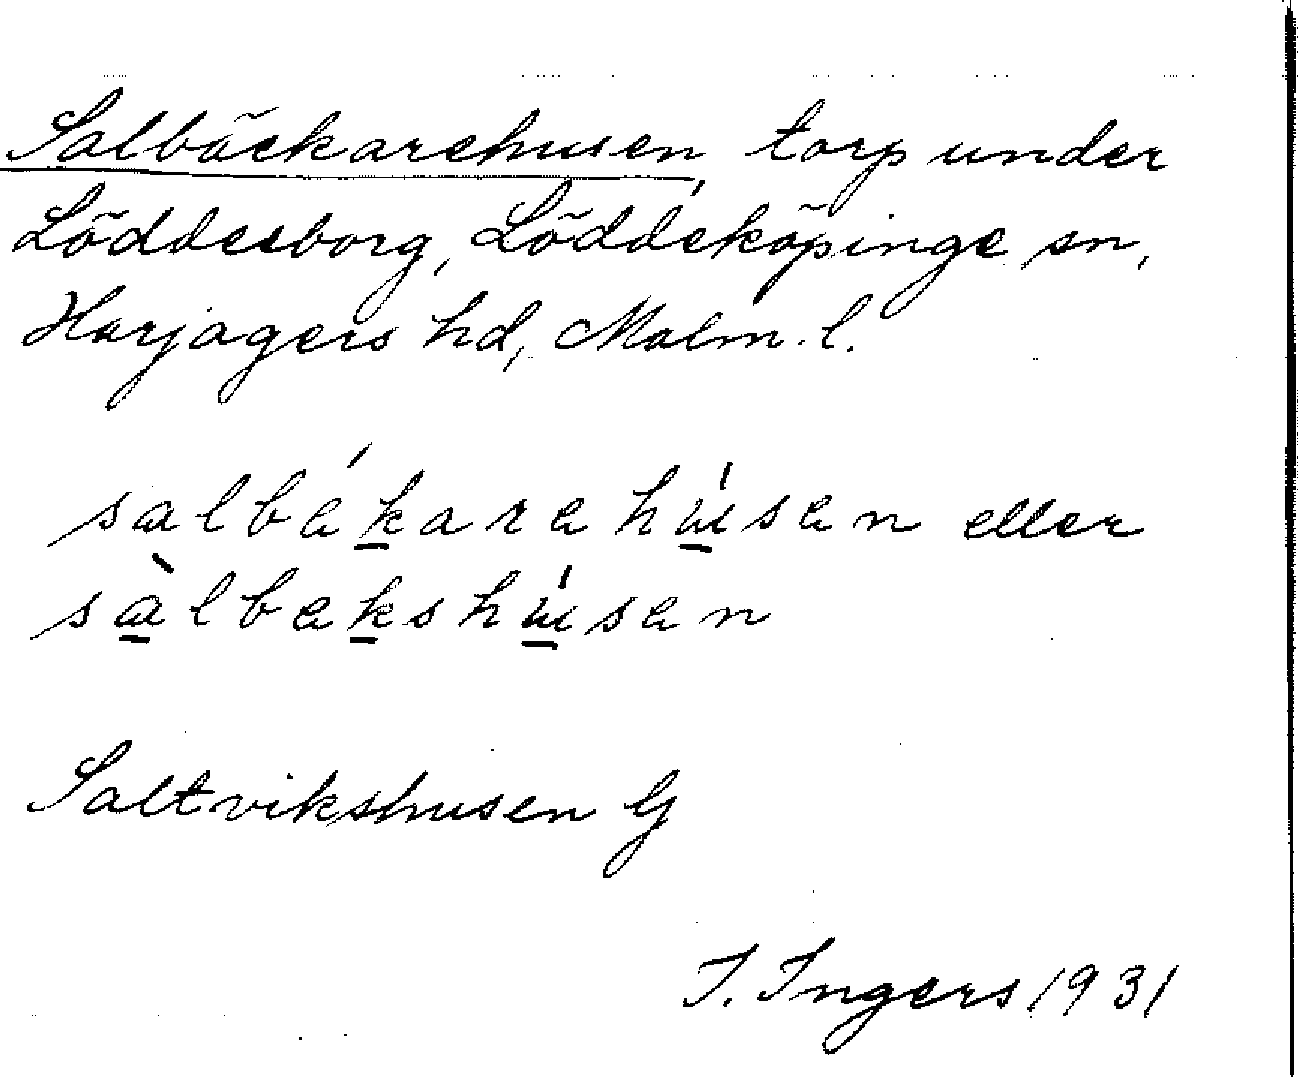 Salbäckarehusen, torp under
Löddesborg, Löddeköpinge sn,
Harjagers hd, Malm. l.
salbékarehúsen eller
sàlbekshúsen
Saltvikshusen G
I. Ingers 1931